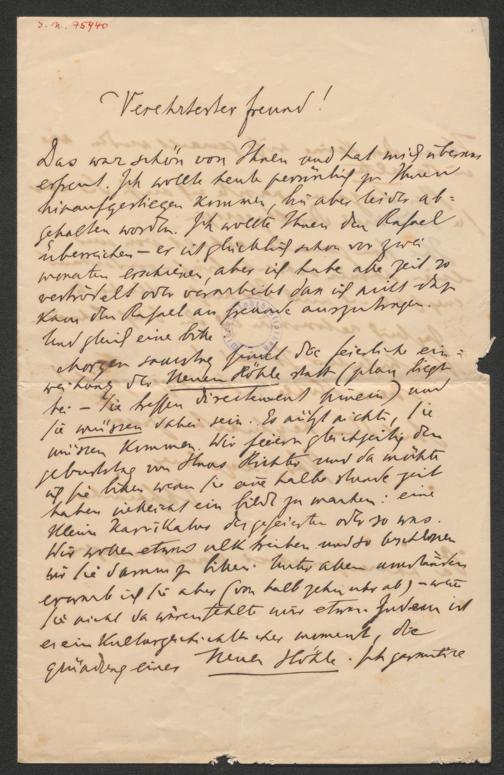 J. N. 75940
Verehrtester freund!
Das war schön von Ihnen und hat mich überaus
erfreut. Ich wollte heute persönlich zu Ihnen
hinaufgestiegen kommen, bin aber leider ab-
gehalten worden. Ich wollte Ihnen den Rafael
überreichen – er ist glücklich schon vor zwei
monaten erschienen, aber ich habe alle zeit so
vertrödelt oder verarbeitet das ich nicht dazu
kam den Rafael an freunde auszutragen.
Und gleich eine bitte
Morgen samstag findet die feierliche ein=
weihung der Neuen Höhle statt (plan liegt
bei – Sie treffen directement hinein) und
Sie müssen dabei sein. Es nützt nichts, Sie
müssen kommen. Wir feiern gleichzeitig den
geburtstag von Hans Richter und da möchte
ich Sie bitten wenn Sie eine halbe stunde zeit
haben vielleicht ein bildl zu machen: eine
kleine karrikatur des gefeierten oder so was.
Wir wollen etwas ulk treiben und so beschlossen
wir Sie darum zu bitten. Unter allen umständen
erwarte ich Sie aber (von halb zehn uhr ab) – wenn
Sie nicht da wären fehlte mir etwas. Zudem ist
es ein kulturgeschichtlicher moment, die
gründung einer Neuen Höhle. Ich garantiere